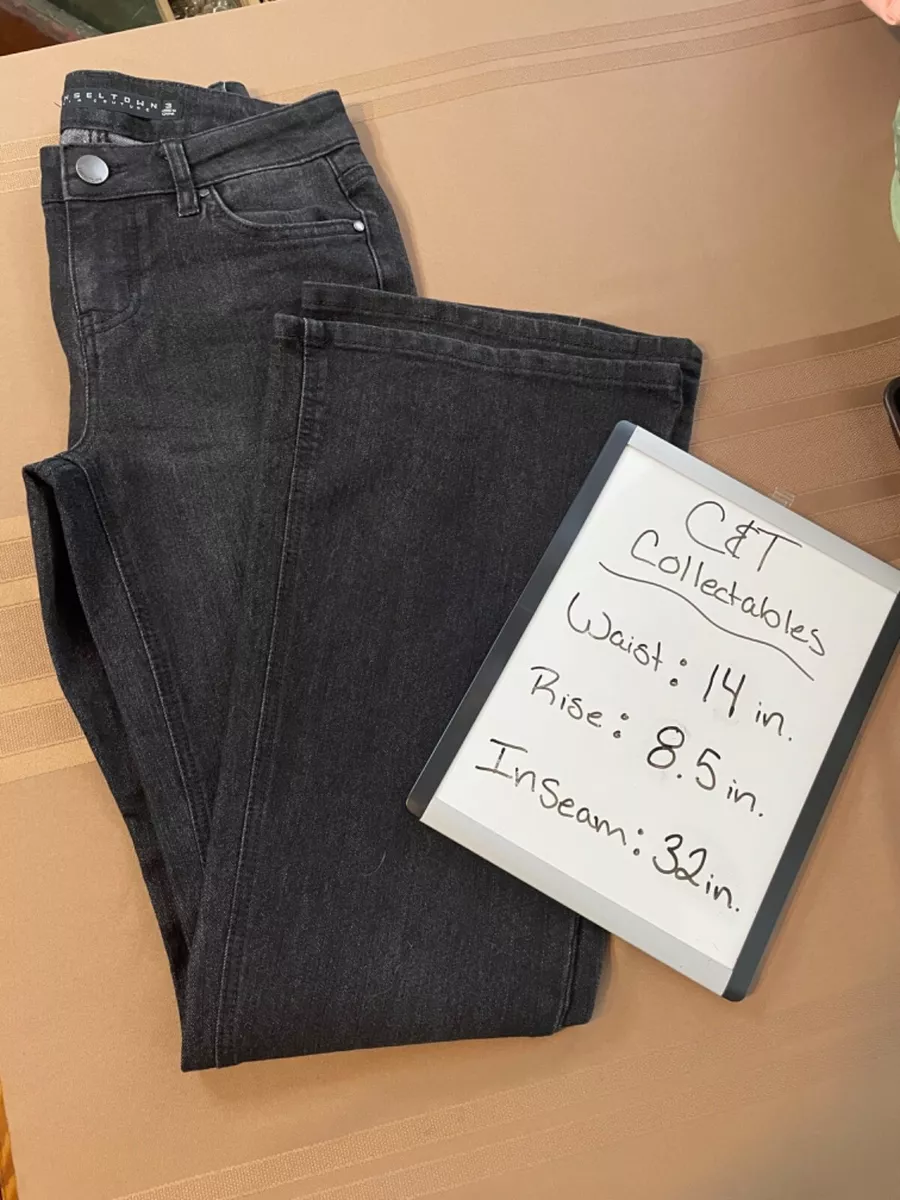 NSELTOWN 3
C&T
Collectables
Waist: 14 in.
Rise: 8.5 in.
Inseam: 32 in.